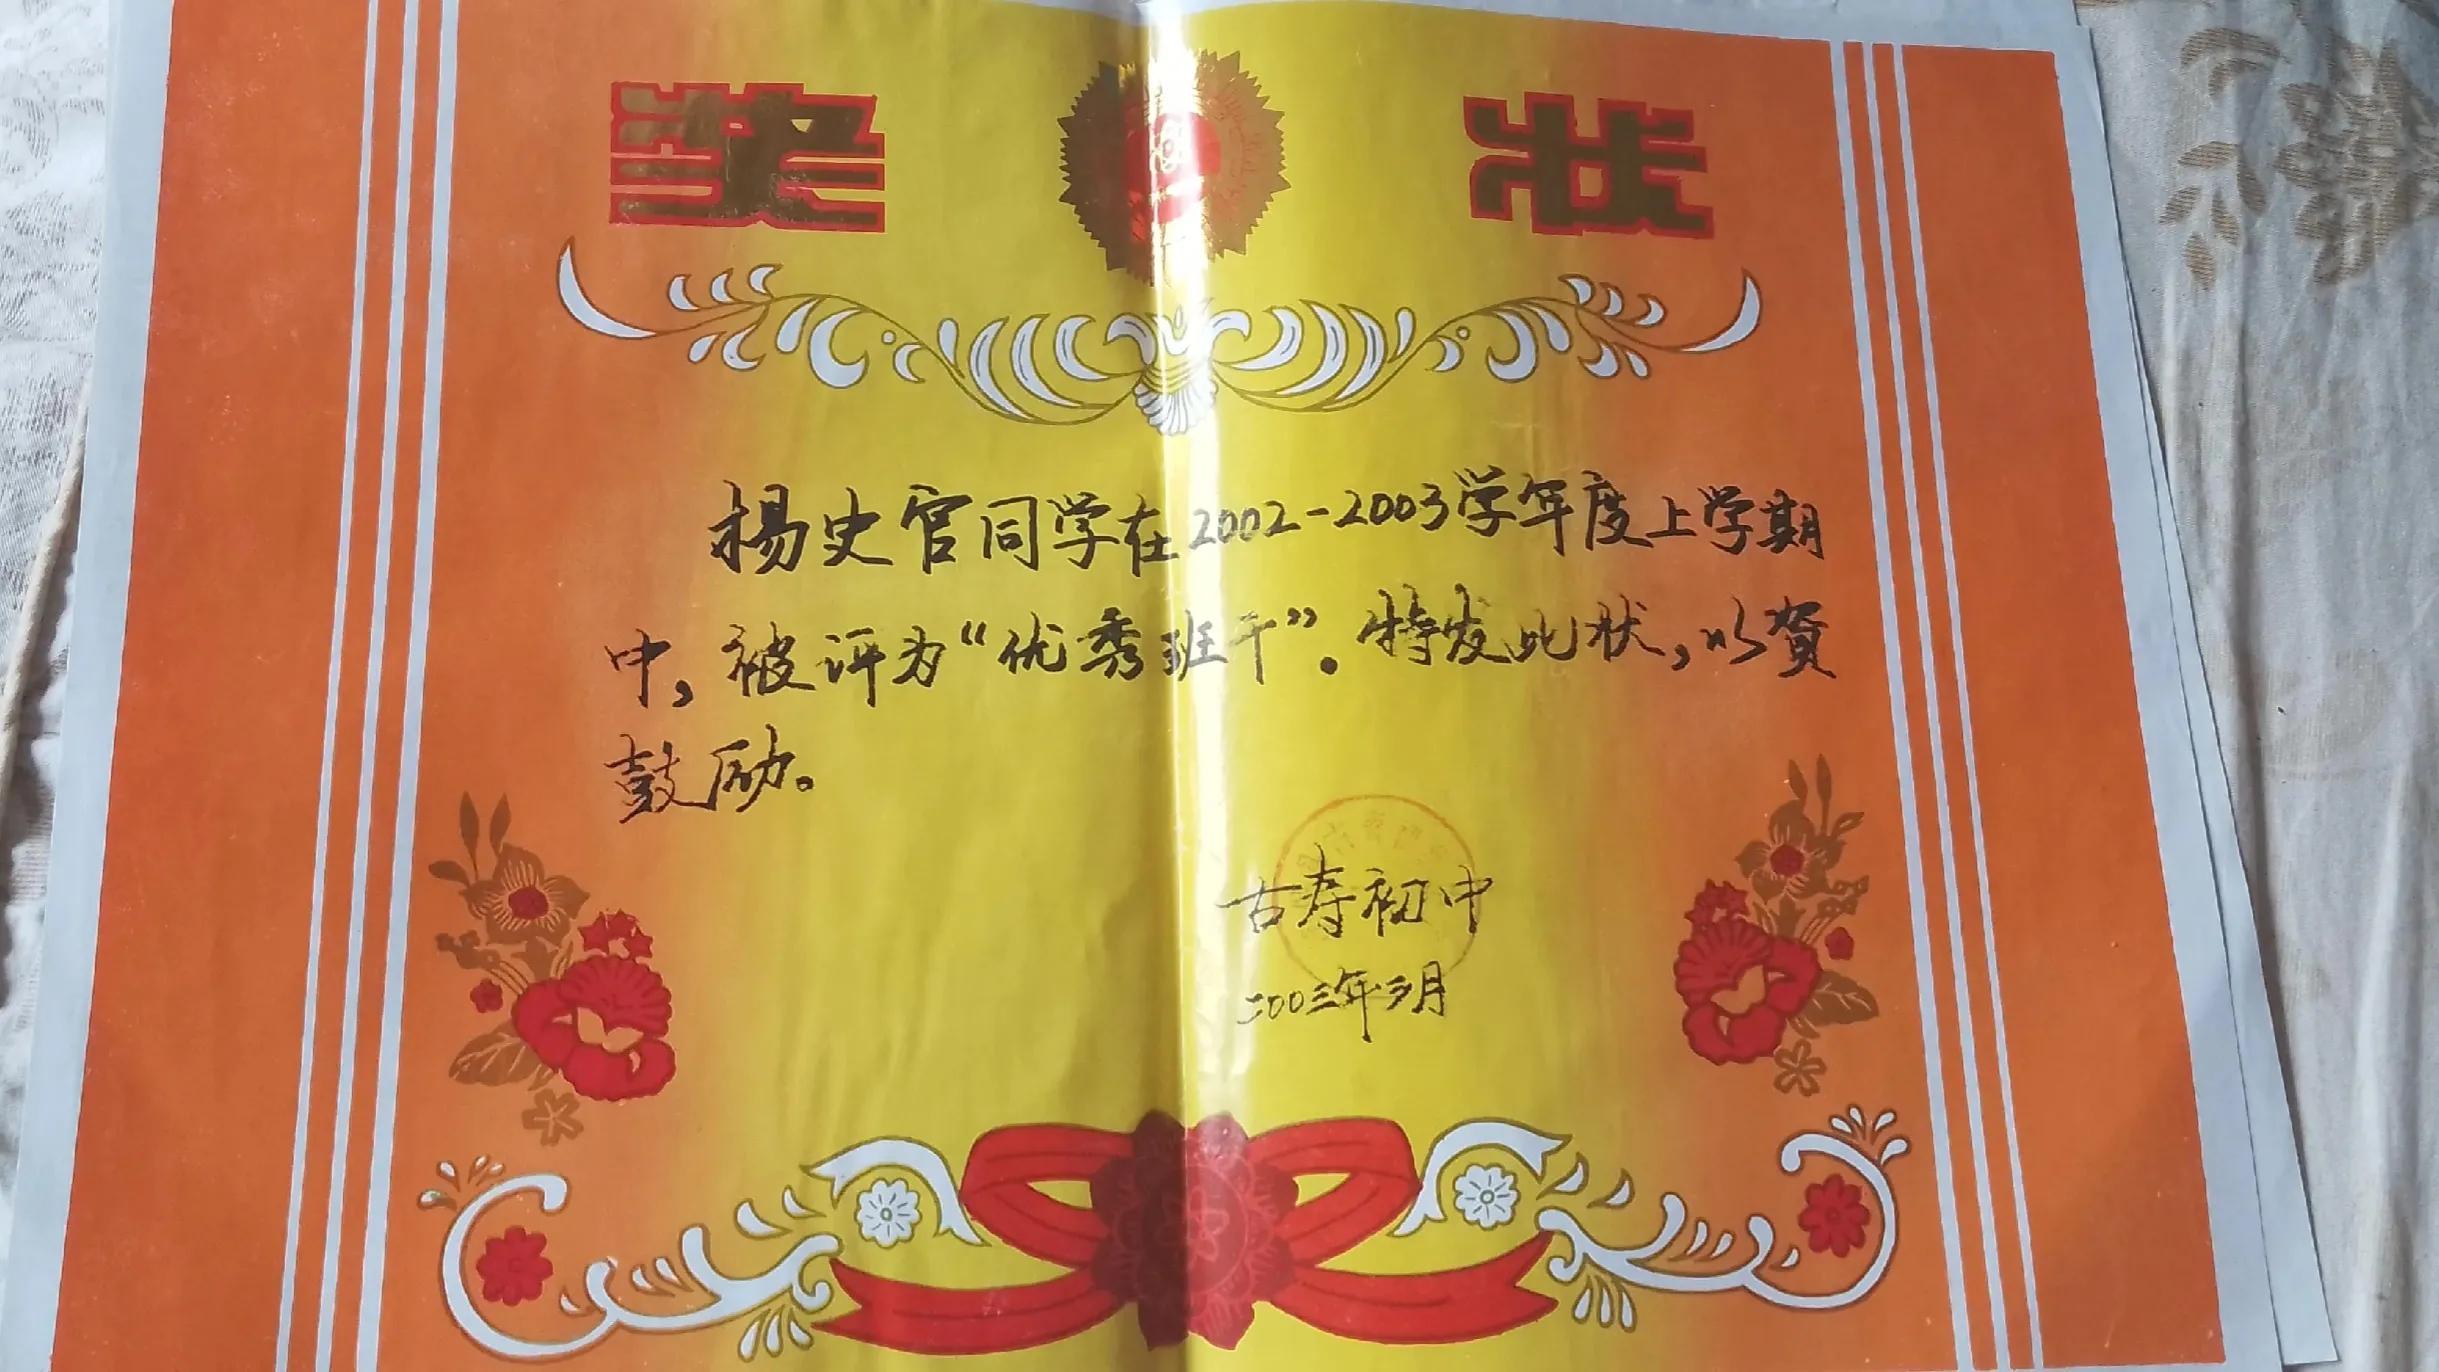 奖状
杨史官同学在2002-2003学年度上学期
中，被评为“优秀班干”。特发此状，以资
鼓励。
古寿初中
二00三年三月